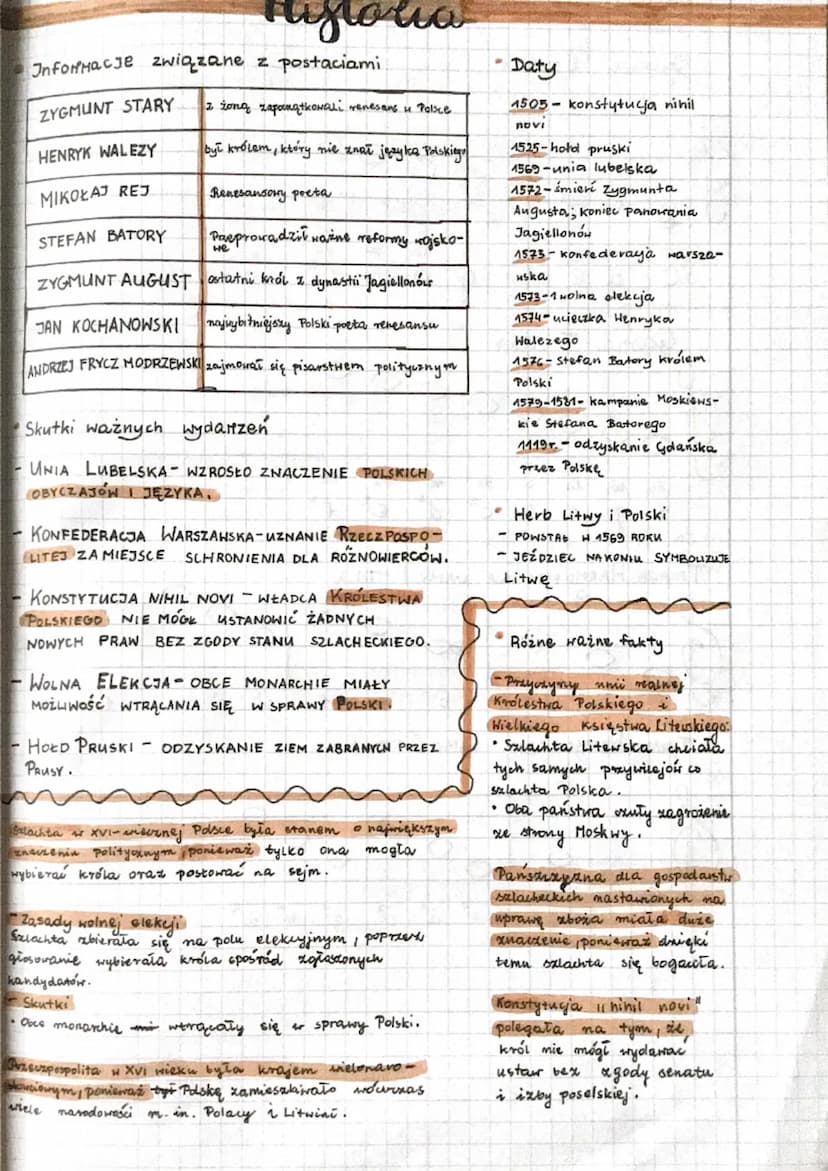 Historia
• Informacje związane z postaciami
ZYGMUNT STARY z żoną zapoczątkowali renesans w Polsce
HENRYK WALEZY był królem, który nie znał języka Polskiego
MIKOŁAJ REJ Renesansowy poeta
STEFAN BATORY Przeprowadził ważne reformy wojsko-
we
ZYGMUNT AUGUST ostatni król z dynastii Jagiellonów
JAN KOCHANOWSKI najwybitniejszy Polski poeta renesansu
ANDRZEJ FRYCZ MODRZEWSKI zajmował się pisarstwem politycznym
• Skutki ważnych wydarzeń
- UNIA LUBELSKA - WZROSŁO ZNACZENIE POLSKICH
OBYCZAJÓW I JĘZYKA.
- KONFEDERACJA WARSZAWSKA - UZNANIE RZECZPOSPO-
LITEJ ZA MIEJSCE SCHRONIENIA DLA RÓŻNOWIERCÓW.
- KONSTYTUCJA NIHIL NOVI - WŁADCA KRÓLESTWA
POLSKIEGO NIE MÓGŁ USTANOWIĆ ŻADNYCH
NOWYCH PRAW BEZ ZGODY STANU SZLACHECKIEGO.
- WOLNA ELEKCJA - OBCE MONARCHIE MIAŁY
MOŻLIWOŚĆ WTRĄCANIA SIĘ W SPRAWY POLSKI.
- HOŁD PRUSKI - ODZYSKANIE ZIEM ZABRANYCH PRZEZ
PRUSY.
Szlachta w XVI-wiecznej Polsce była stanem o największym
znaczeniu politycznym, ponieważ tylko ona mogła
wybierać króla oraz posłować na sejm.
- Zasady wolnej elekcji
Szlachta zbierała się na polu elekcyjnym, poprzez
głosowanie wybierała króla spośród zgłoszonych
kandydatów.
- Skutki
• Obce monarchie wtrącały się w sprawy Polski.
Rzeczpospolita w XVI wieku była krajem wielonaro-
dowościowym, ponieważ był Polskę zamieszkiwało wówczas
wiele narodowości m. in. Polacy i Litwini.
• Daty
1505 - konstytucja nihil
novi
1525 - hołd pruski
1569 - unia lubelska
1572 - śmierć Zygmunta
Augusta; koniec panowania
Jagiellonów
1573 - konfederacja warsza-
wska
1573 - 1 wolna elekcja
1574 - ucieczka Henryka
Walezego
1576 - Stefan Batory królem
Polski
1579-1581 - kampanie Moskiews-
kie Stefana Batorego
1119r. - odzyskanie Gdańska
przez Polskę
• Herb Litwy i Polski
- POWSTAŁ W 1569 ROKU
- JEŹDZIEC NA KONIU SYMBOLIZUJE
LITWĘ
• Różne ważne fakty
- Przyczyny unii realnej
Królestwa Polskiego i
Wielkiego Księstwa Litewskiego:
• Szlachta Litewska chciała
tych samych przywilejów co
szlachta Polska.
• Oba państwa czuły zagrożenie
ze strony Moskwy.
Pańszczyzna dla gospodarstw
szlacheckich nastawionych na
uprawę zboża miała duże
znaczenie, ponieważ dzięki
temu szlachta się bogaciła.
Konstytucja "nihil novi"
polegała na tym, że
król nie mógł wydawać
ustaw bez zgody senatu
i izby poselskiej.